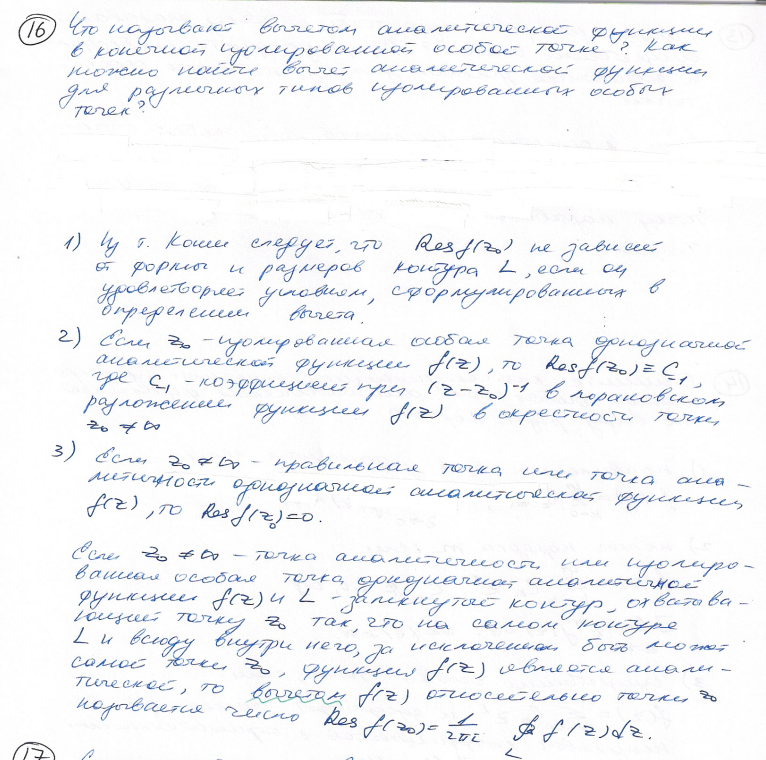 16 Что называют вычетом аналитической функции
в конечной изолированной особой точке? Как
можно найти вычет аналитической функции
для различных типов изолированных особых
точек?
1) Из т. Коши следует, что Res f(z₀) не зависит
от формы и размеров контура L, если он
удовлетворяет условиям, сформулированных в
определении вычета.
2) Если z₀ - изолированная особая точка однозначной
аналитической функции f(z), то Res f(z₀) = C₋₁,
где C₋₁ - коэффициент при (z-z₀)⁻¹ в лорановском
разложении функции f(z) в окрестности точки
z₀ ≠ ∞
3) Если z₀ ≠ ∞ - правильная точка или точка ана-
литичности однозначной аналитической функции
f(z), то Res f(z₀)=0.
Если z₀ ≠ ∞ - точка аналитичности или изолиро-
ванная особая точка однозначной аналитичной
функции f(z) и L - замкнутый контур, охватыва-
ющий точку z₀ так, что на самом контуре
L и всюду внутри него, за исключением быть может
самой точки z₀, функция f(z) является анали-
тической, то вычетом f(z) относительно точки z₀
называется число Res f(z₀) = 1/2πi ∮ f(z)dz.
L
17